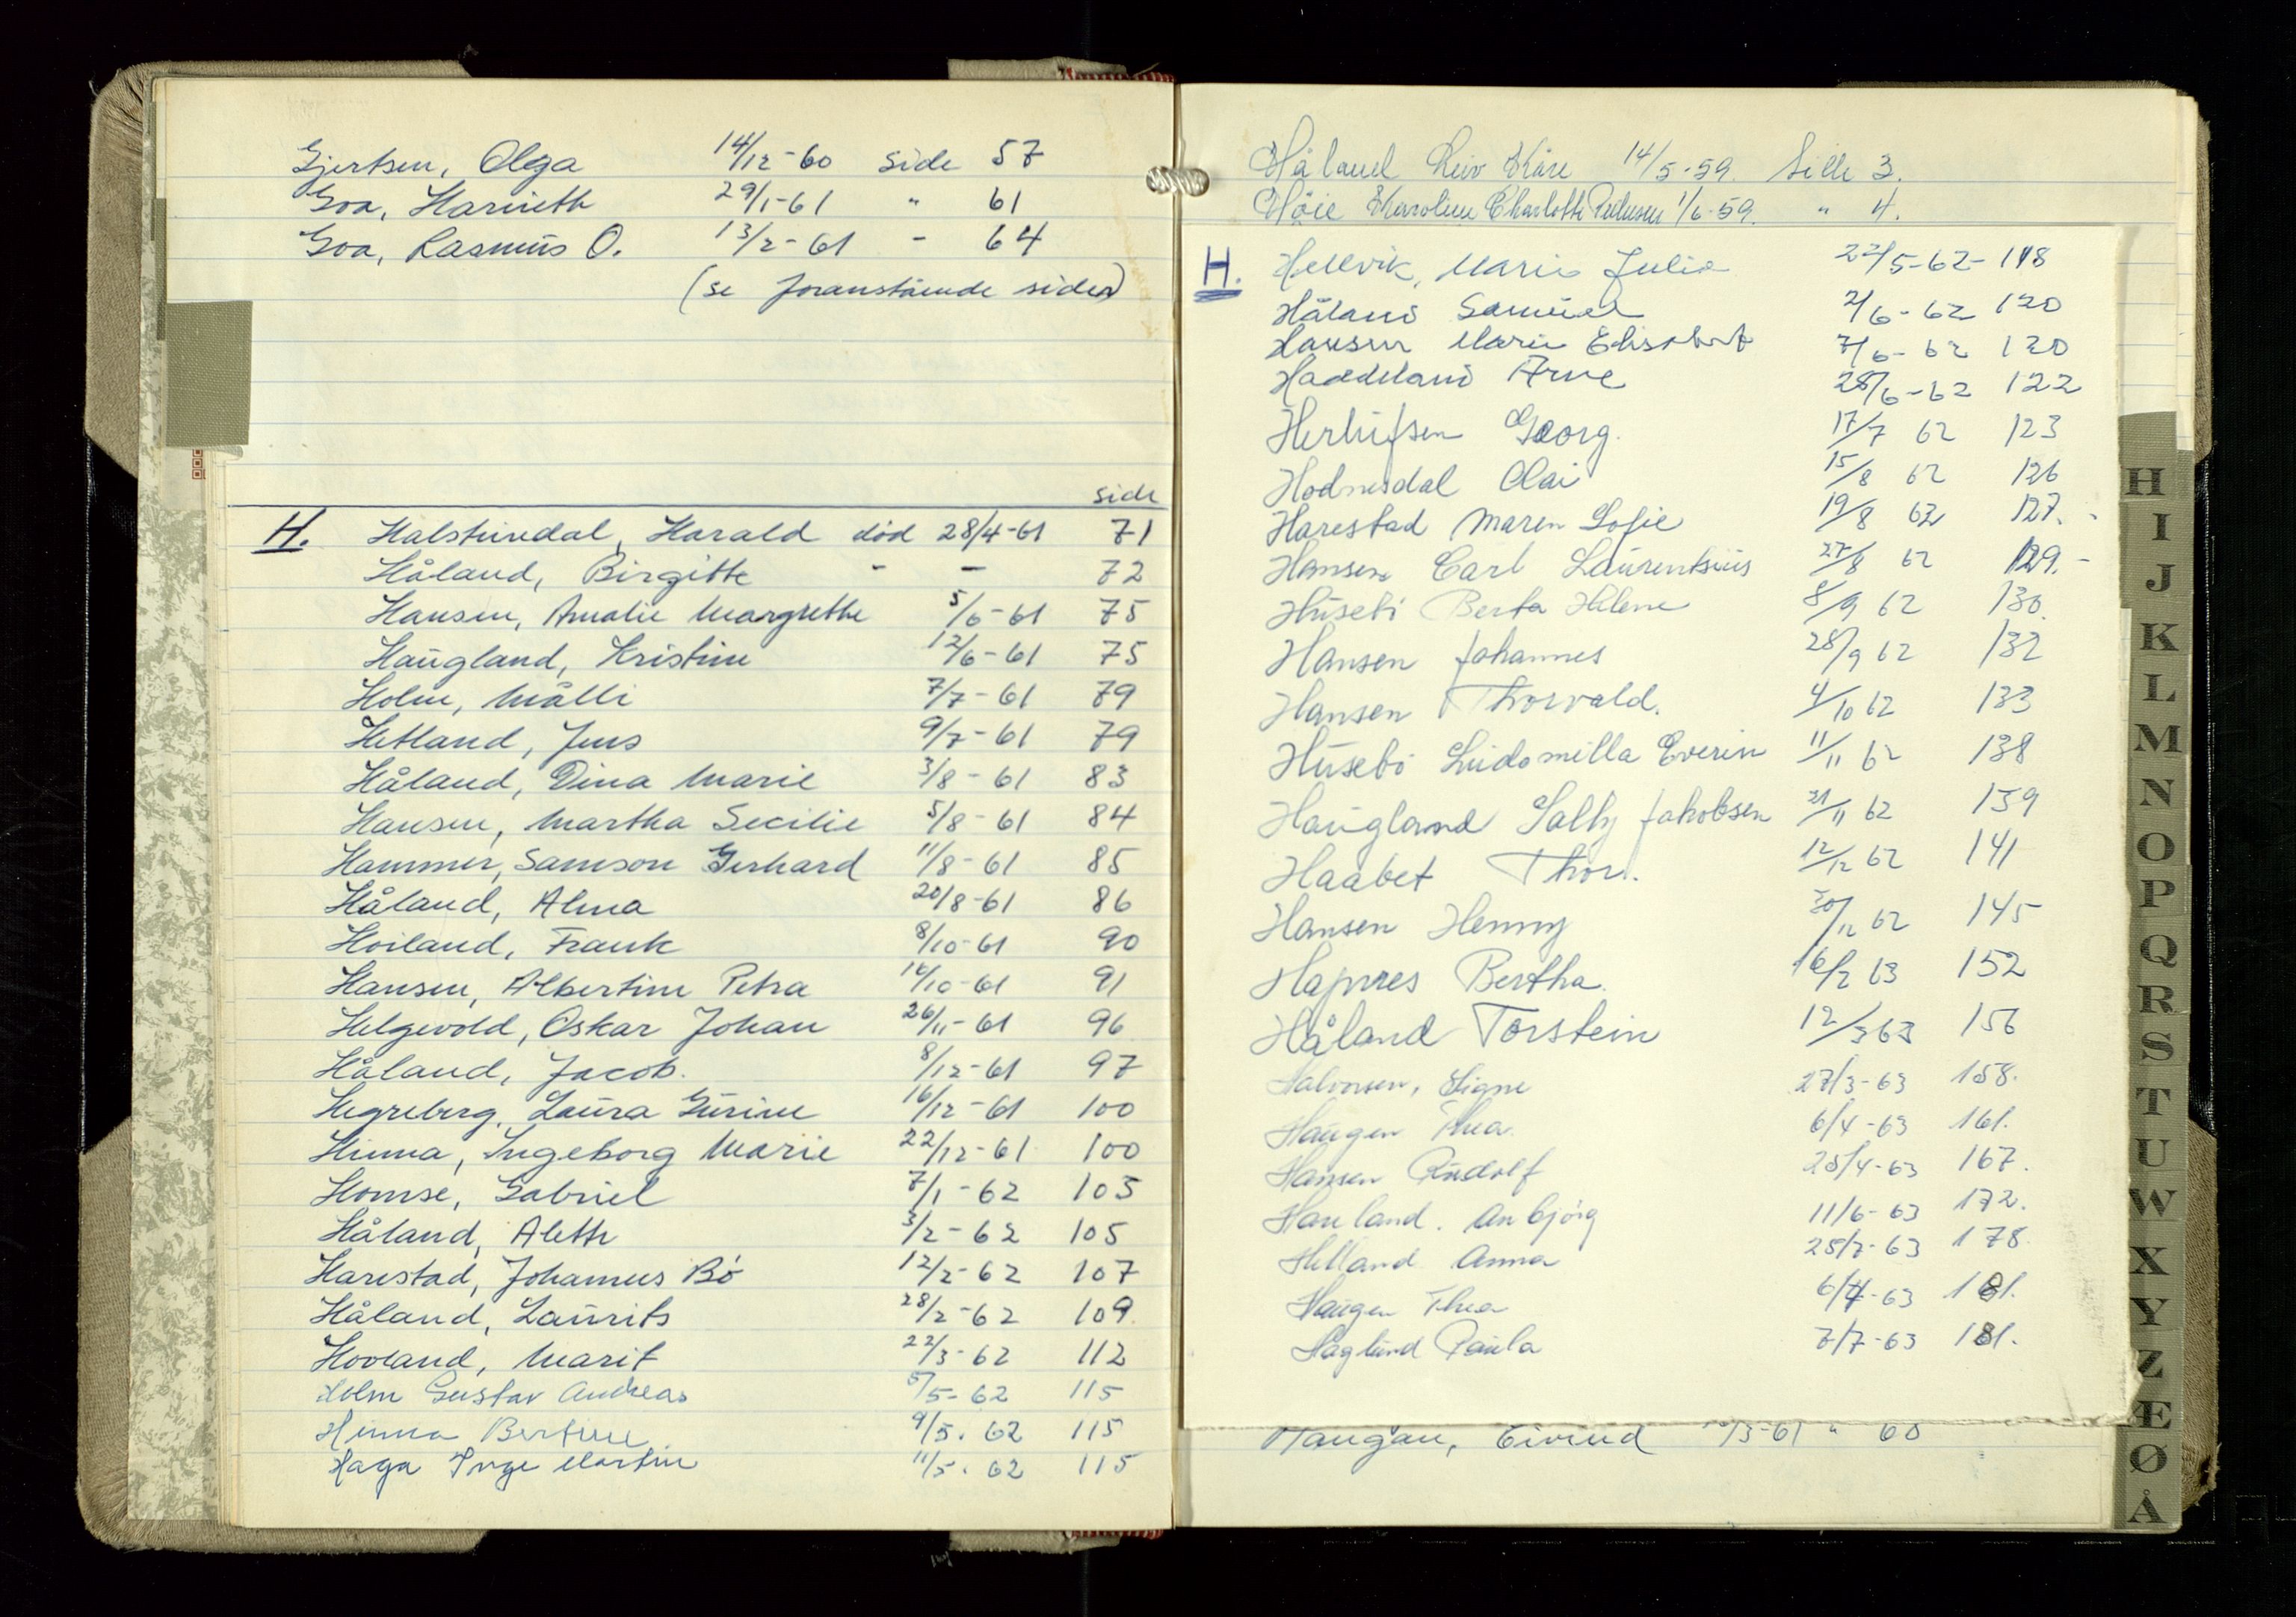 Gjertsen, Olga 14/12-60 side 57
Goa, Harrieth 29/1-61 " 61
Goa, Rasmus O. 13/2-61 - 64
(se foranstående sider)
side
H. Halstundal, Harald død 28/4-61 71
Håland, Birgitte - - 72
Hansen, Amalie Margrethe 5/6-61 75
Haugland, Kristine 12/6-61 75
Holm, Målli 7/7-61 79
Hetland, Jens 9/7-61 79
Håland, Dina Marie 3/8-61 83
Hansen, Martha Secilie 5/8-61 84
Hammer, Samson Gerhard 11/8-61 85
Håland, Alma 20/8-61 86
Hoiland, Frank 8/10-61 90
Hansen, Albertine Petra 14/10-61 91
Helgevold, Oskar Johan 26/11-61 96
Håland, Jacob. 8/12-61 97
Hegreberg, Laura Gurine 16/12-61 100
Hinna, Ingeborg Marie 22/12-61 100
Homse, Gabriel 7/1-62 103
Håland, Aleth 3/2-62 105
Harestad, Johannes Bø 12/2-62 107
Håland, Laurits 28/2-62 109
Hovland, Marit 22/3-62 112
Holm Gustav Andreas 5/5-62 115
Hinna Bertine 9/5. 62 115
Haga Inge Martin 11/5. 62 115
Håland Leiv Kåre 14/5-59. Side 3.
Höie Karoline Charlotte 1/6-59. " 4.
H. Hellvik, Marie Julie 22/5-62- 118
Håland Samuel 2/6-62 120
Hansen Marie Elisabet 7/6-62 120
Haddeland Arne 28/6-62 122
Herlufsen Georg. 17/7 62 123
Hodnesdal Olai 15/8 62 126
Harestad Maren Sofie 19/8 62 127.
Hansen Carl Laurentsius 27/8 62 129.-
Husebö Berta Helene 8/9 62 130.
Hansen Johannes 28/9 62 132
Hansen Thorvald. 4/10 62 133
Husebö Ludomilla Everin 11/11 62 138
Haugland Sally Jakobsen 21/11 62 139
Haabet Thor. 12/12 62 141
Hansen Henny 30/12 62 145
Hapnes Bertha. 16/2 63 152
Håland Torstein 12/3 63 156
Halvorsen, Signe 27/3-63 158.
Haugen Thea. 6/4-63 161.
Hansen Rudolf 28/4-63 167.
Hauland. Anbjörg 11/6-63 172.
Helland Anna 25/7-63 178
Haugen Thea 6/4-63 181.
Haglund Paula 7/7-63 181.
Haugan, Eivind /3-61 " 68
H
I
J
K
L
M
N
O
P
Q
R
S
T
U
W
X
Y
Z
Æ
Ø
Å